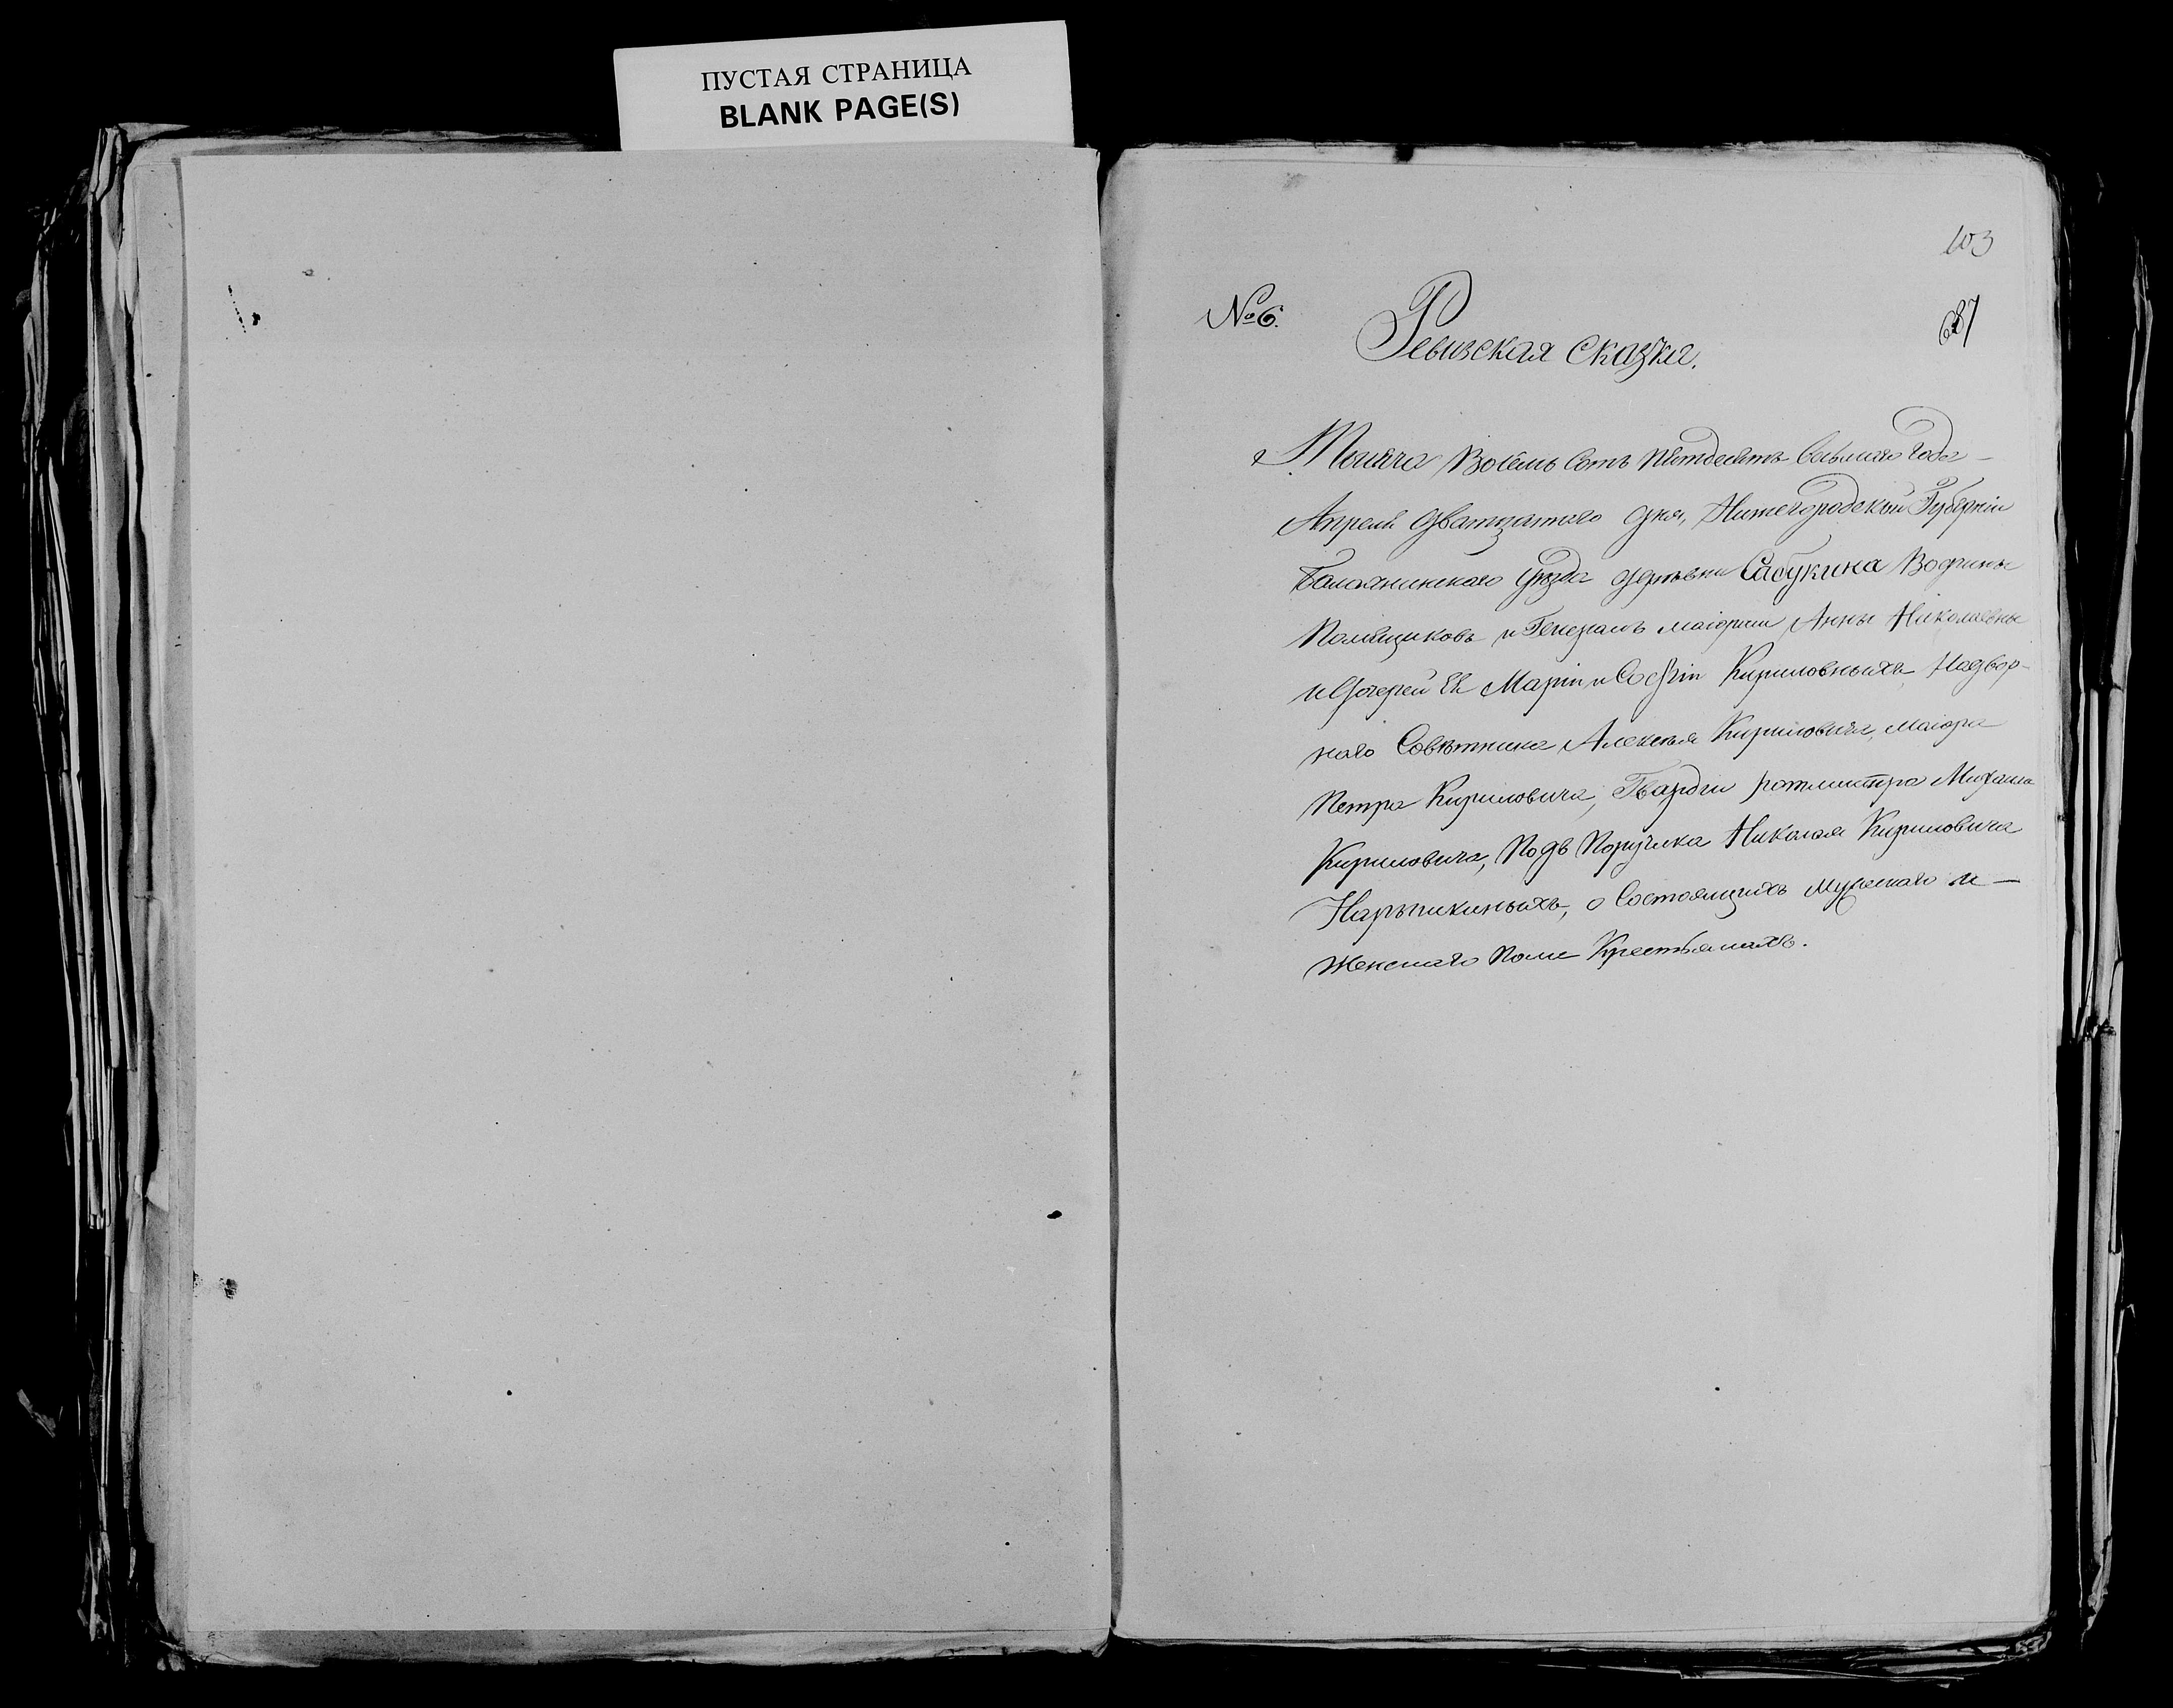 ПУСТАЯ СТРАНИЦА
BLANK PAGE(S)
103
№6.
687
Ревизская сказка.
Тысяча Восемь Сотъ пятдесятъ Восьмаго Года
Апреля дватцатого дня, Нижегородской Губерніи
Балахнинского Уезда деревни Сабукина Вотчины
Помещиковъ и Генералъ маіорши Анны Николаевны
и Дочерей Ее Маріи и Софіи Кириловныхъ Надвор-
наго Советника Алексея Кириловича, маіора
Петра Кириловича, Гвардіи ротмистра Михаила
Кириловича, Подъ Поручика Николая Кириловича
Нарышкиныхъ, о Состоящихъ мужскаго и
женскаго пола Крестьянахъ.